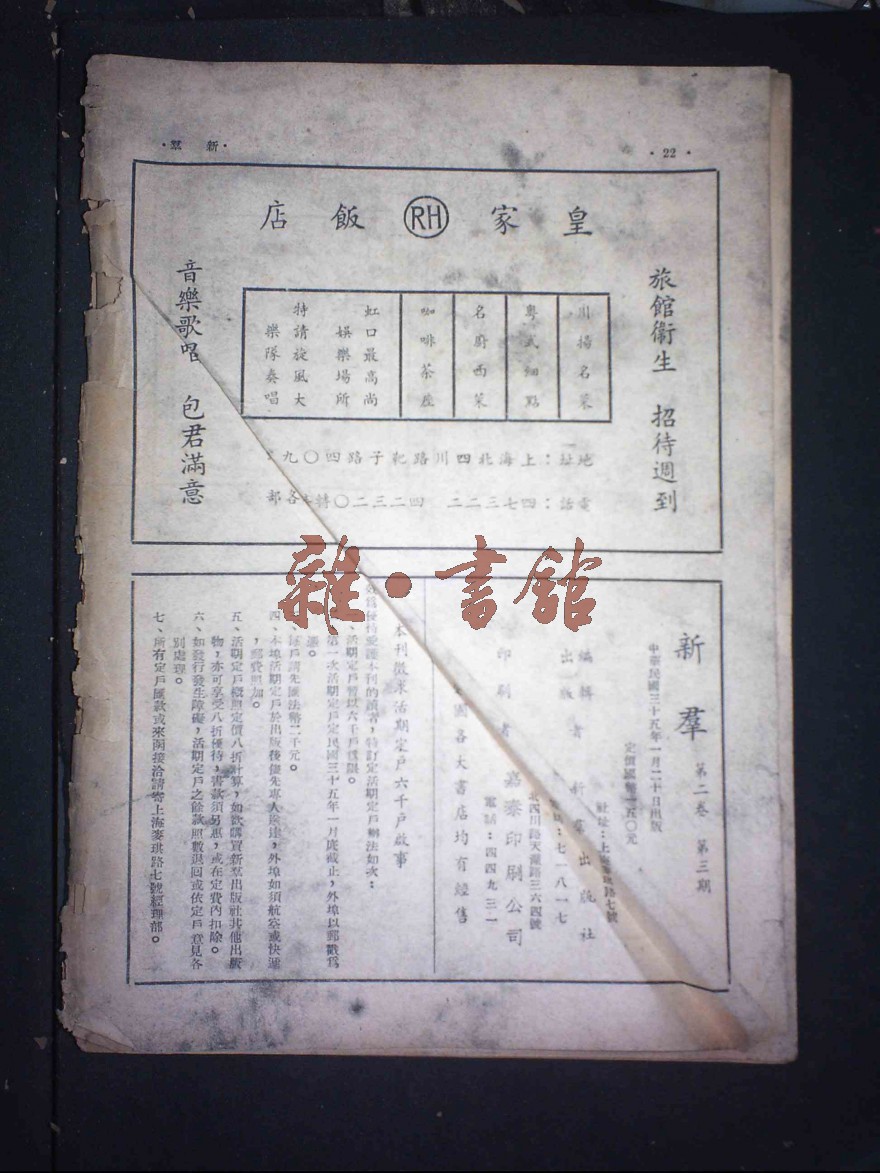 ·新 羣·
·22·
皇家 RH 飯店
旅館衛生 招待週到
川揚名菜
粵式細點
名廚西菜
咖啡茶座
虹口最高尚
娛樂場所
特請旋風大
樂隊奏唱
音樂歌唱 包君滿意
地址：上海北四川路靶子路四〇九
電話：四七三二二 四二三二〇轉各部
雜·書館
新羣 第二卷 第三期
中華民國三十五年一月二十日出版
定價國幣 五〇元
編輯者
出版 新羣出版社
社址：上海麥琪路七號
七一八一七
印刷者 嘉泰印刷公司
北四川路天潼路三六四號
電話：四四九三一
國各大書店均有經售
本刊徵求活期定戶六千戶啟事
為優待愛護本刊的讀者，特訂定活期定戶辦法如次：
活期定戶暫以六千戶為限。
第一次活期定戶定民國三十五年一月底截止，外埠以郵戳為
憑。
定戶請先匯法幣二千元。
四、本埠活期定戶於出版後儘先專人送達，外埠如須航空或快遞
，郵費照加。
五、活期定戶概照定價八折計算，如欲購買新羣出版社其他出版
物，亦可享受八折優待，書款須另惠，或在定費內扣除。
六、如發行發生障礙，活期定戶之餘款照數退回或依定戶意見各
別處理。
七、所有定戶匯款或來函接洽請寄上海麥琪路七號經理部。